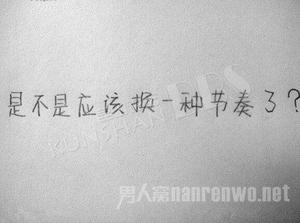 是不是应该换一种节奏了?
KUNSHAN BBS
男人窝nanrenwo.net